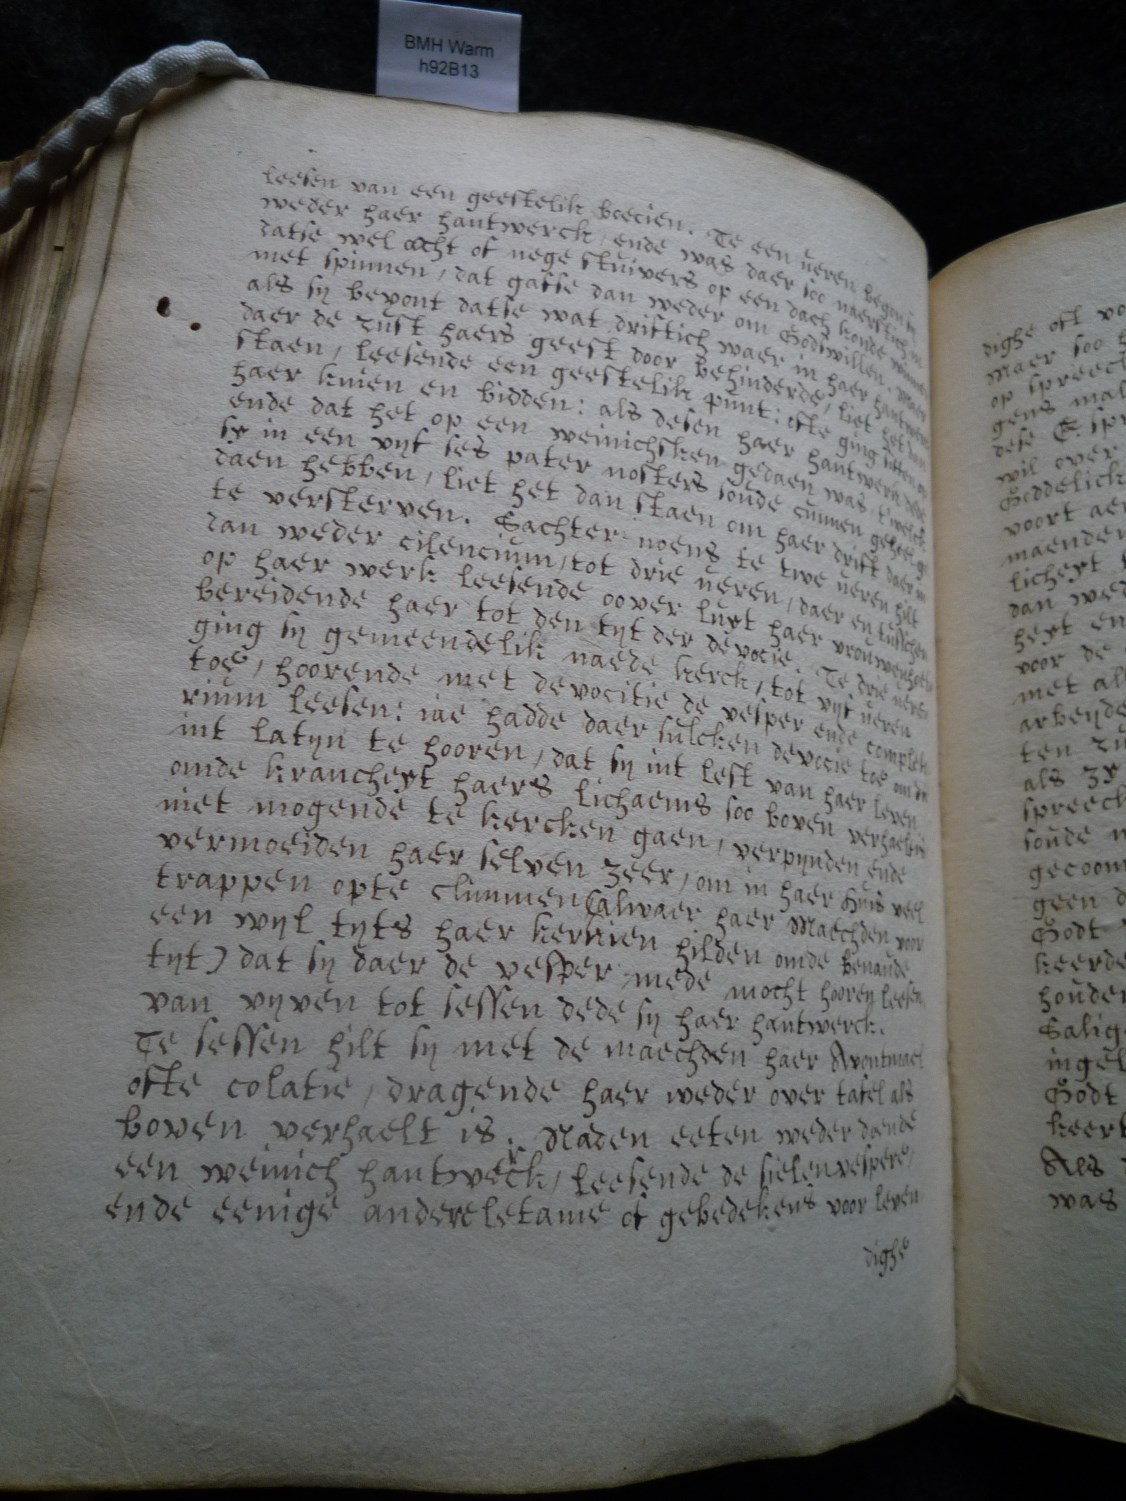 BMH Warm
h92B13
leesen van een geestelik boecien. Te een ueren begon sy
weder haer hantwerck, ende was daer soo naerstich in
datse wel acht of nege stuivers op een dach konde winnen
met spinnen, dat gafse dan weder om Godswillen. Maer
als sy bevont datse wat driftich waer in haer hantwerck
daer de rust haers geest door behinderde, liet het dan
staen, leesende een geestelik punt: ofte ging sitten op
haer knien en bidden: als desen haer hantwerk dede
ende dat het op een weinichsken gedaen was, t'welck
sy in een vijf ses pater nosters soude cunnen geheel ge
daen hebben, liet het dan staen om haer drift daer in
te versterven. Sachter noens te twe ueren hilt
dan weder cilencium, tot drie ueren, daer en tusschen
op haer werk leesende oover luyt haer vrouwen
bereidende haer tot den tyt der devocie. Te drie ueren
ging sy gemeendelik naede kerck, tot vijf ueren
toe, hoorende met devocitie de vesper ende complet
rium leesen: iae hadde daer sulcken devocie toe om die
int latijn te hooren, dat sy int lest van haer leven
omde kranckheyt haers lichaems soo boven verhaelt is
niet mogende te kercken gaen, verpijnden ende
vermoeiden haer selven zeer, om in haer huis veel
trappen opte climmen (alwaer haer Maechden voor
een wijl tyts haer kerkien hilden omde benaude
tyt) dat sy daer de vesper mede mocht hooren leesen.
van vyven tot sessen dede sy haer hantwerck.
Te sessen hilt sy met de maechden haer Avontmael
ofte colatie, dragende haer weder over tafel als
boven verhaelt is. Naden eeten weder doende
een weinich hantwerck, leesende de sielen vespere,
ende eenige andere letanie of gebedekens voor leven
dighe
dighe oft
Maer soo
op spreeck
gens mal
dese
wil over
Goddelick
voort aen
maenden
licheyt
dan wed
heyt en
voor de
met al
arbeyde
ten
als zy
spreeck
soude
gecoom
geen
Godt
keerde
houden
Salig
ingel
Godt
keert
Als
was